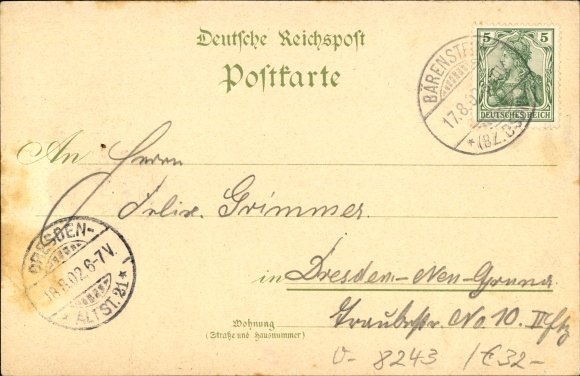 Deutsche Reichspost
Postkarte
5 5
DEUTSCHES REICH
BÄRENSTE
17.8.0
*(BZ.D
An Herrn
Felix Grimmer
DRESDEN-
18.8.02.6-7V.
* ALTST. 21 *
in Dresden-Neu-Gruna
Wohnung
(Straße und Hausnummer)
Traubestr. No. 10. II
8243 1€32-